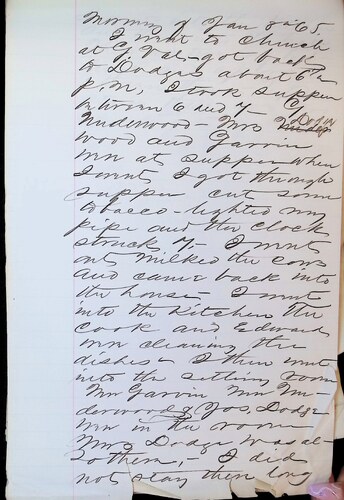 Morning of Jan 8th 65,
I went to church
at G. Val - got back
to Dodges about 6
p.m, I took supper
between 6 and 7 -
Underwood Mrs Dodge
wood and Garvin
were at supper when
I went, I got through
supper cut some
tobacco - lighted my
pipe and the clock
struck 7, - I went
out milked the cows
and came back into
the house - I went
into the kitchen, the
cook and Edward
were cleaning the
dishes - I then went
into the sitting room
Mr Garvin Mr Un
derwood & Jos. Dodge
were in the room
Mrs Dodge was al-
so there, - I did
not stay there long